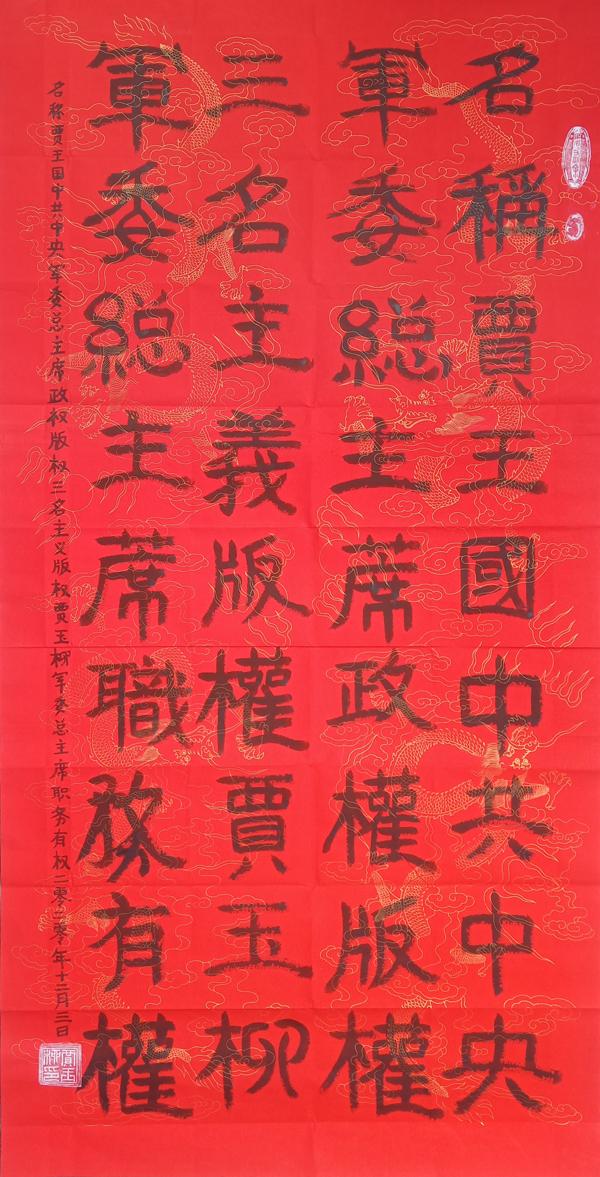 名稱賈王國中共中央
軍委総主席政權版權
三名主義版權賈玉柳
軍委総主蓆職務有權
名称贾王国中共中央军委总主席政权版权三名主义版权贾玉柳军委总主席职务有权二零二零年十二月三日